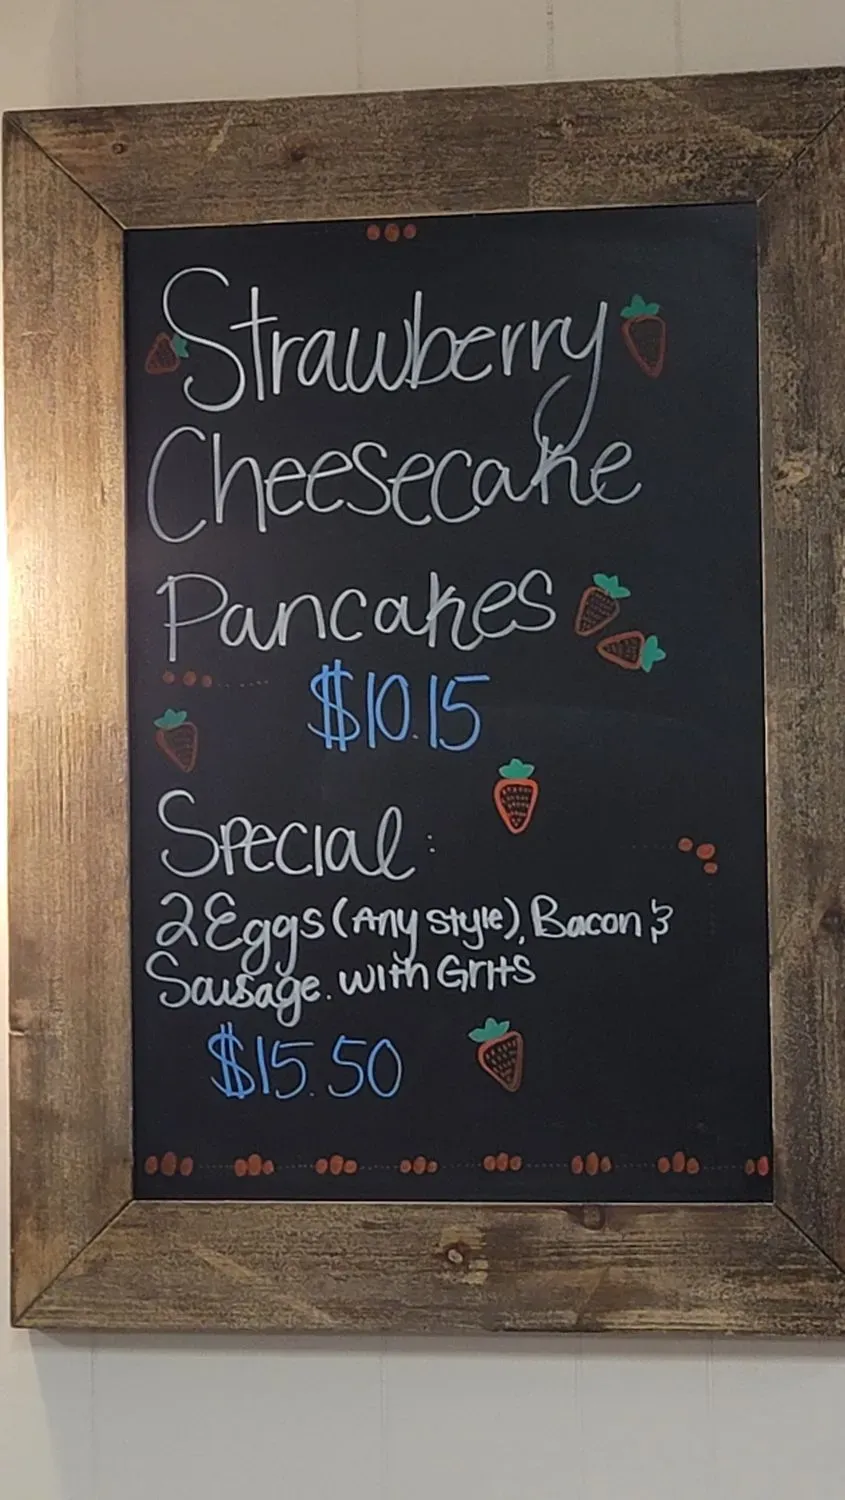 Strawberry
Cheesecake
Pancakes
$10.15
Special:
2 Eggs (Any style), Bacon &
Sausage. with Grits
$15.50